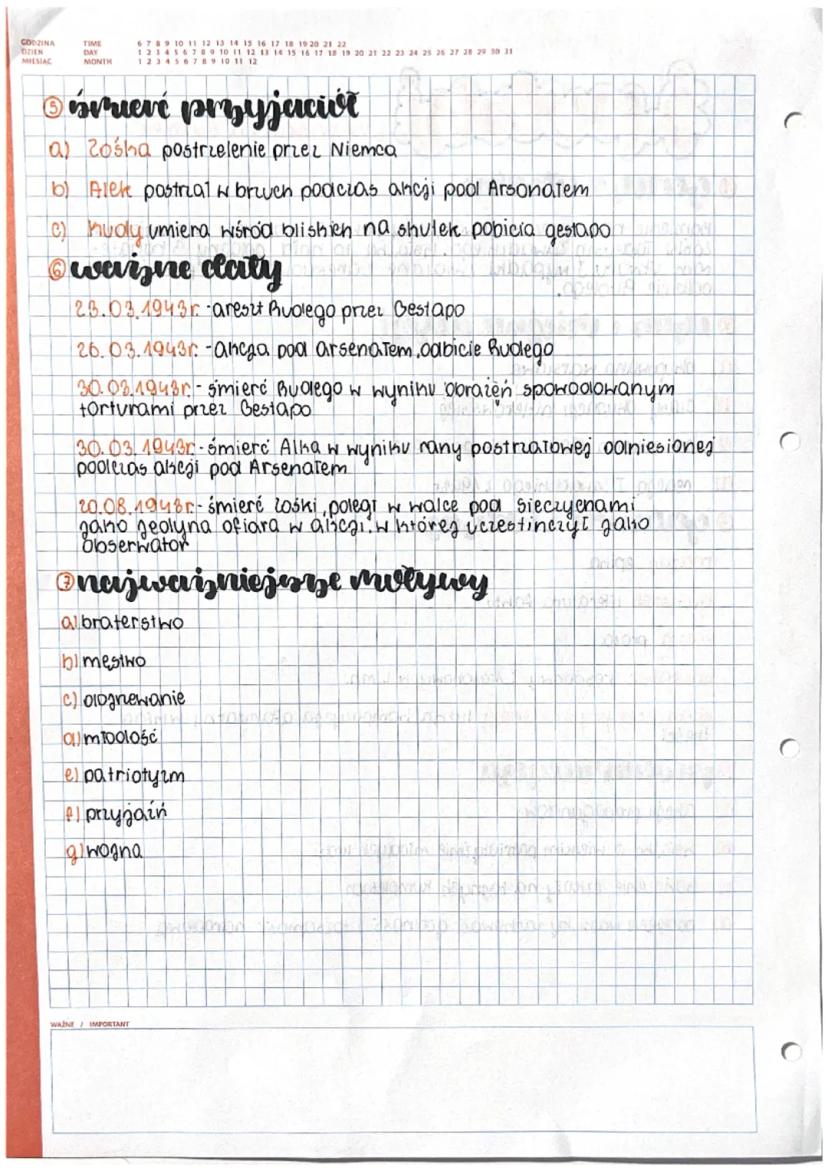 GODZINA TIME 6 7 8 9 10 11 12 13 14 15 16 17 18 19 20 21 22
DZIEŃ DAY 1 2 3 4 5 6 7 8 9 10 11 12 13 14 15 16 17 18 19 20 21 22 23 24 25 26 27 28 29 30 31
MIESIĄC MONTH 1 2 3 4 5 6 7 8 9 10 11 12
⑤ śmierć przyjaciół
a) Zośka postrzelenie przez Niemca
b) Alek postrzał w brzuch podczas akcji pod Arsenałem
c) Rudy umiera wśród bliskich na skutek pobicia gestapo
⑥ ważne daty
23.03.1943r. - areszt Rudego przez Gestapo
26.03.1943r. - akcja pod arsenałem, odbicie Rudego
30.03.1943r. - śmierć Rudego w wyniku obrażeń spowodowanym
torturami przez Gestapo
30.03.1943r. - śmierć Alka w wyniku rany postrzałowej odniesionej
podczas akcji pod Arsenałem
20.08.1943r. - śmierć Zośki, poległ w walce pod Sieczychami
jako jedyna ofiara w akcji, w której uczestniczył jako
obserwator
⑦ najważniejsze motywy
a) braterstwo
b) męstwo
c) dojrzewanie
d) młodość
e) patriotyzm
f) przyjaźń
g) wojna
WAŻNE / IMPORTANT